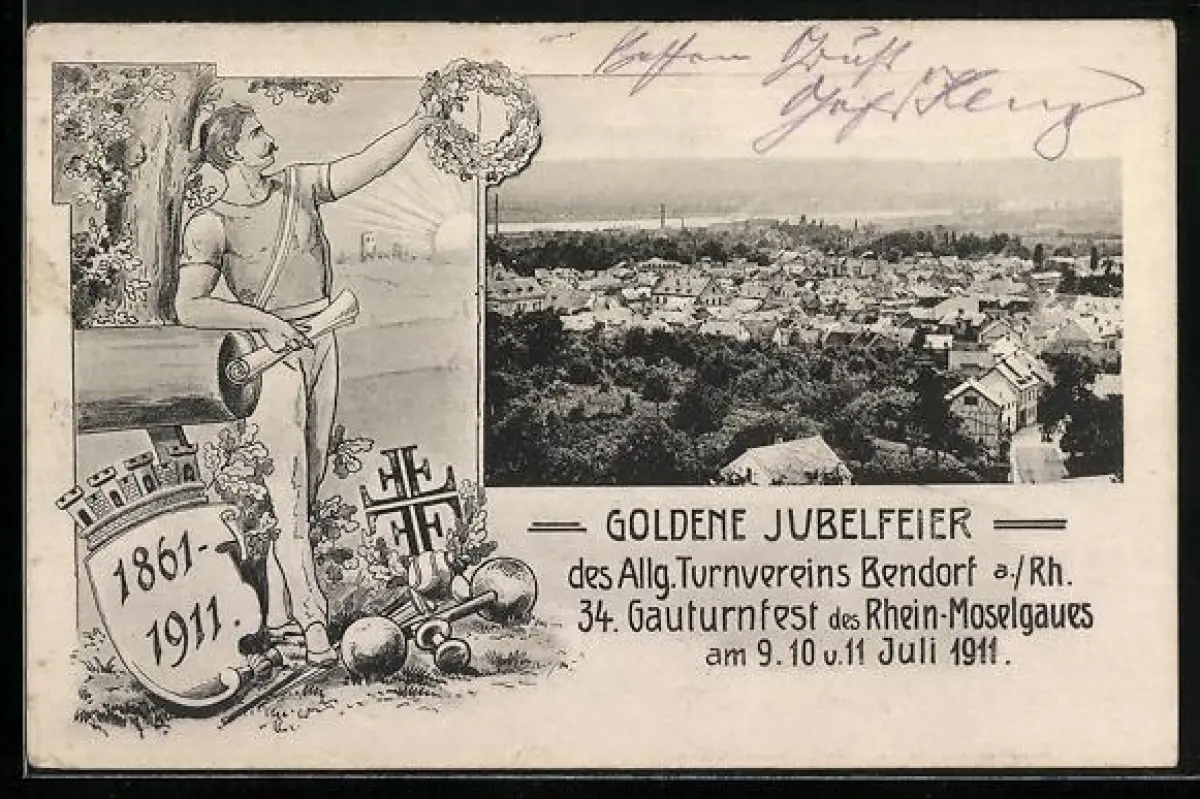 Besten Gruß
1861-
1911.
GOLDENE JUBELFEIER
des Allg. Turnvereins Bendorf a./Rh.
34. Gauturnfest des Rhein-Moselgaues
am 9. 10 u. 11 Juli 1911.